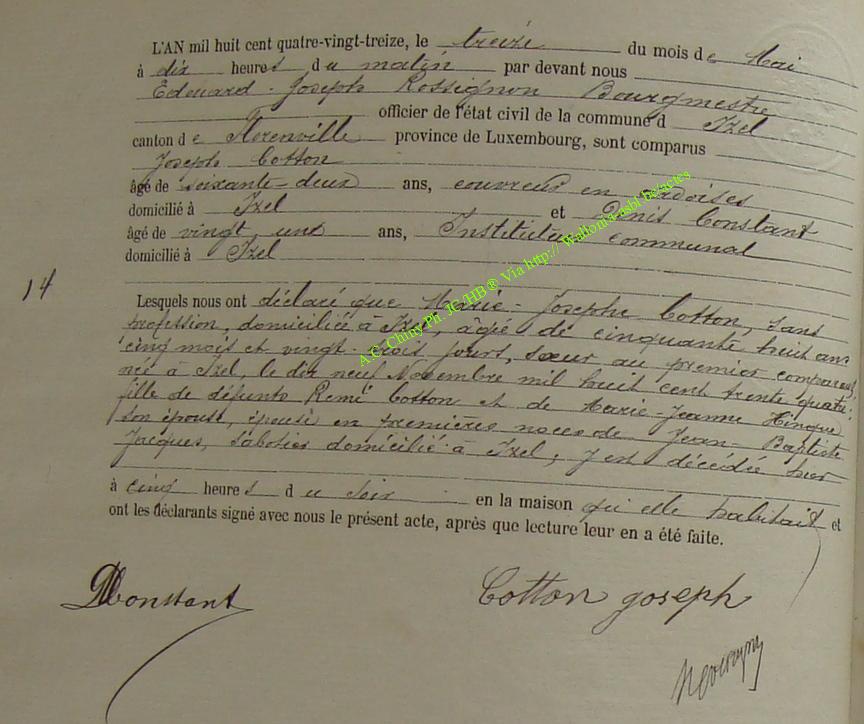 L'AN mil huit cent quatre-vingt-treize, le treize du mois de Mai
à dix heures du matin par devant nous
Edouard-Joseph Rossignon Bourgmestre
officier de l'état civil de la commune d Izel
canton de Florenville province de Luxembourg, sont comparus
Joseph Cotton
âgé de soixante-deux ans, couvreur en ardoises
domicilié à Izel et Denis Constant
âgé de vingt un ans, Instituteur communal
domicilié à Izel
14
Lesquels nous ont déclaré que Marie-Josephe Cotton, sans
profession, domiciliée à Izel, âgée de cinquante huit ans
cinq mois et vingt-trois jours, sœur au premier comparant
née à Izel, le dix neuf Novembre mil huit cent trente quatre;
fille de défunts Remi Cotton et de Marie-Jeanne
son épouse, épouse en premières noces de Jean-Baptiste
Jacques, sabotier domicilié à Izel, y est décédée hier
à cinq heures du soir en la maison qu'elle habitait et
ont les déclarants signé avec nous le présent acte, après que lecture leur en a été faite.
DConstant
Cotton joseph
A.C. Chiny Ph. JC/HB ® Via http:// Wallonia-asbl be/actes